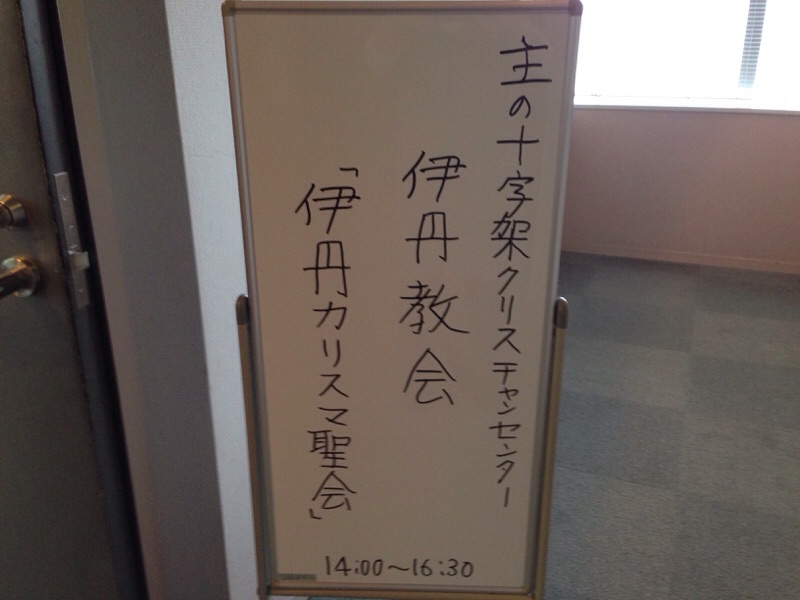 主の十字架クリスチャンセンター
伊丹教会
「伊丹カリスマ聖会」
14:00〜16:30